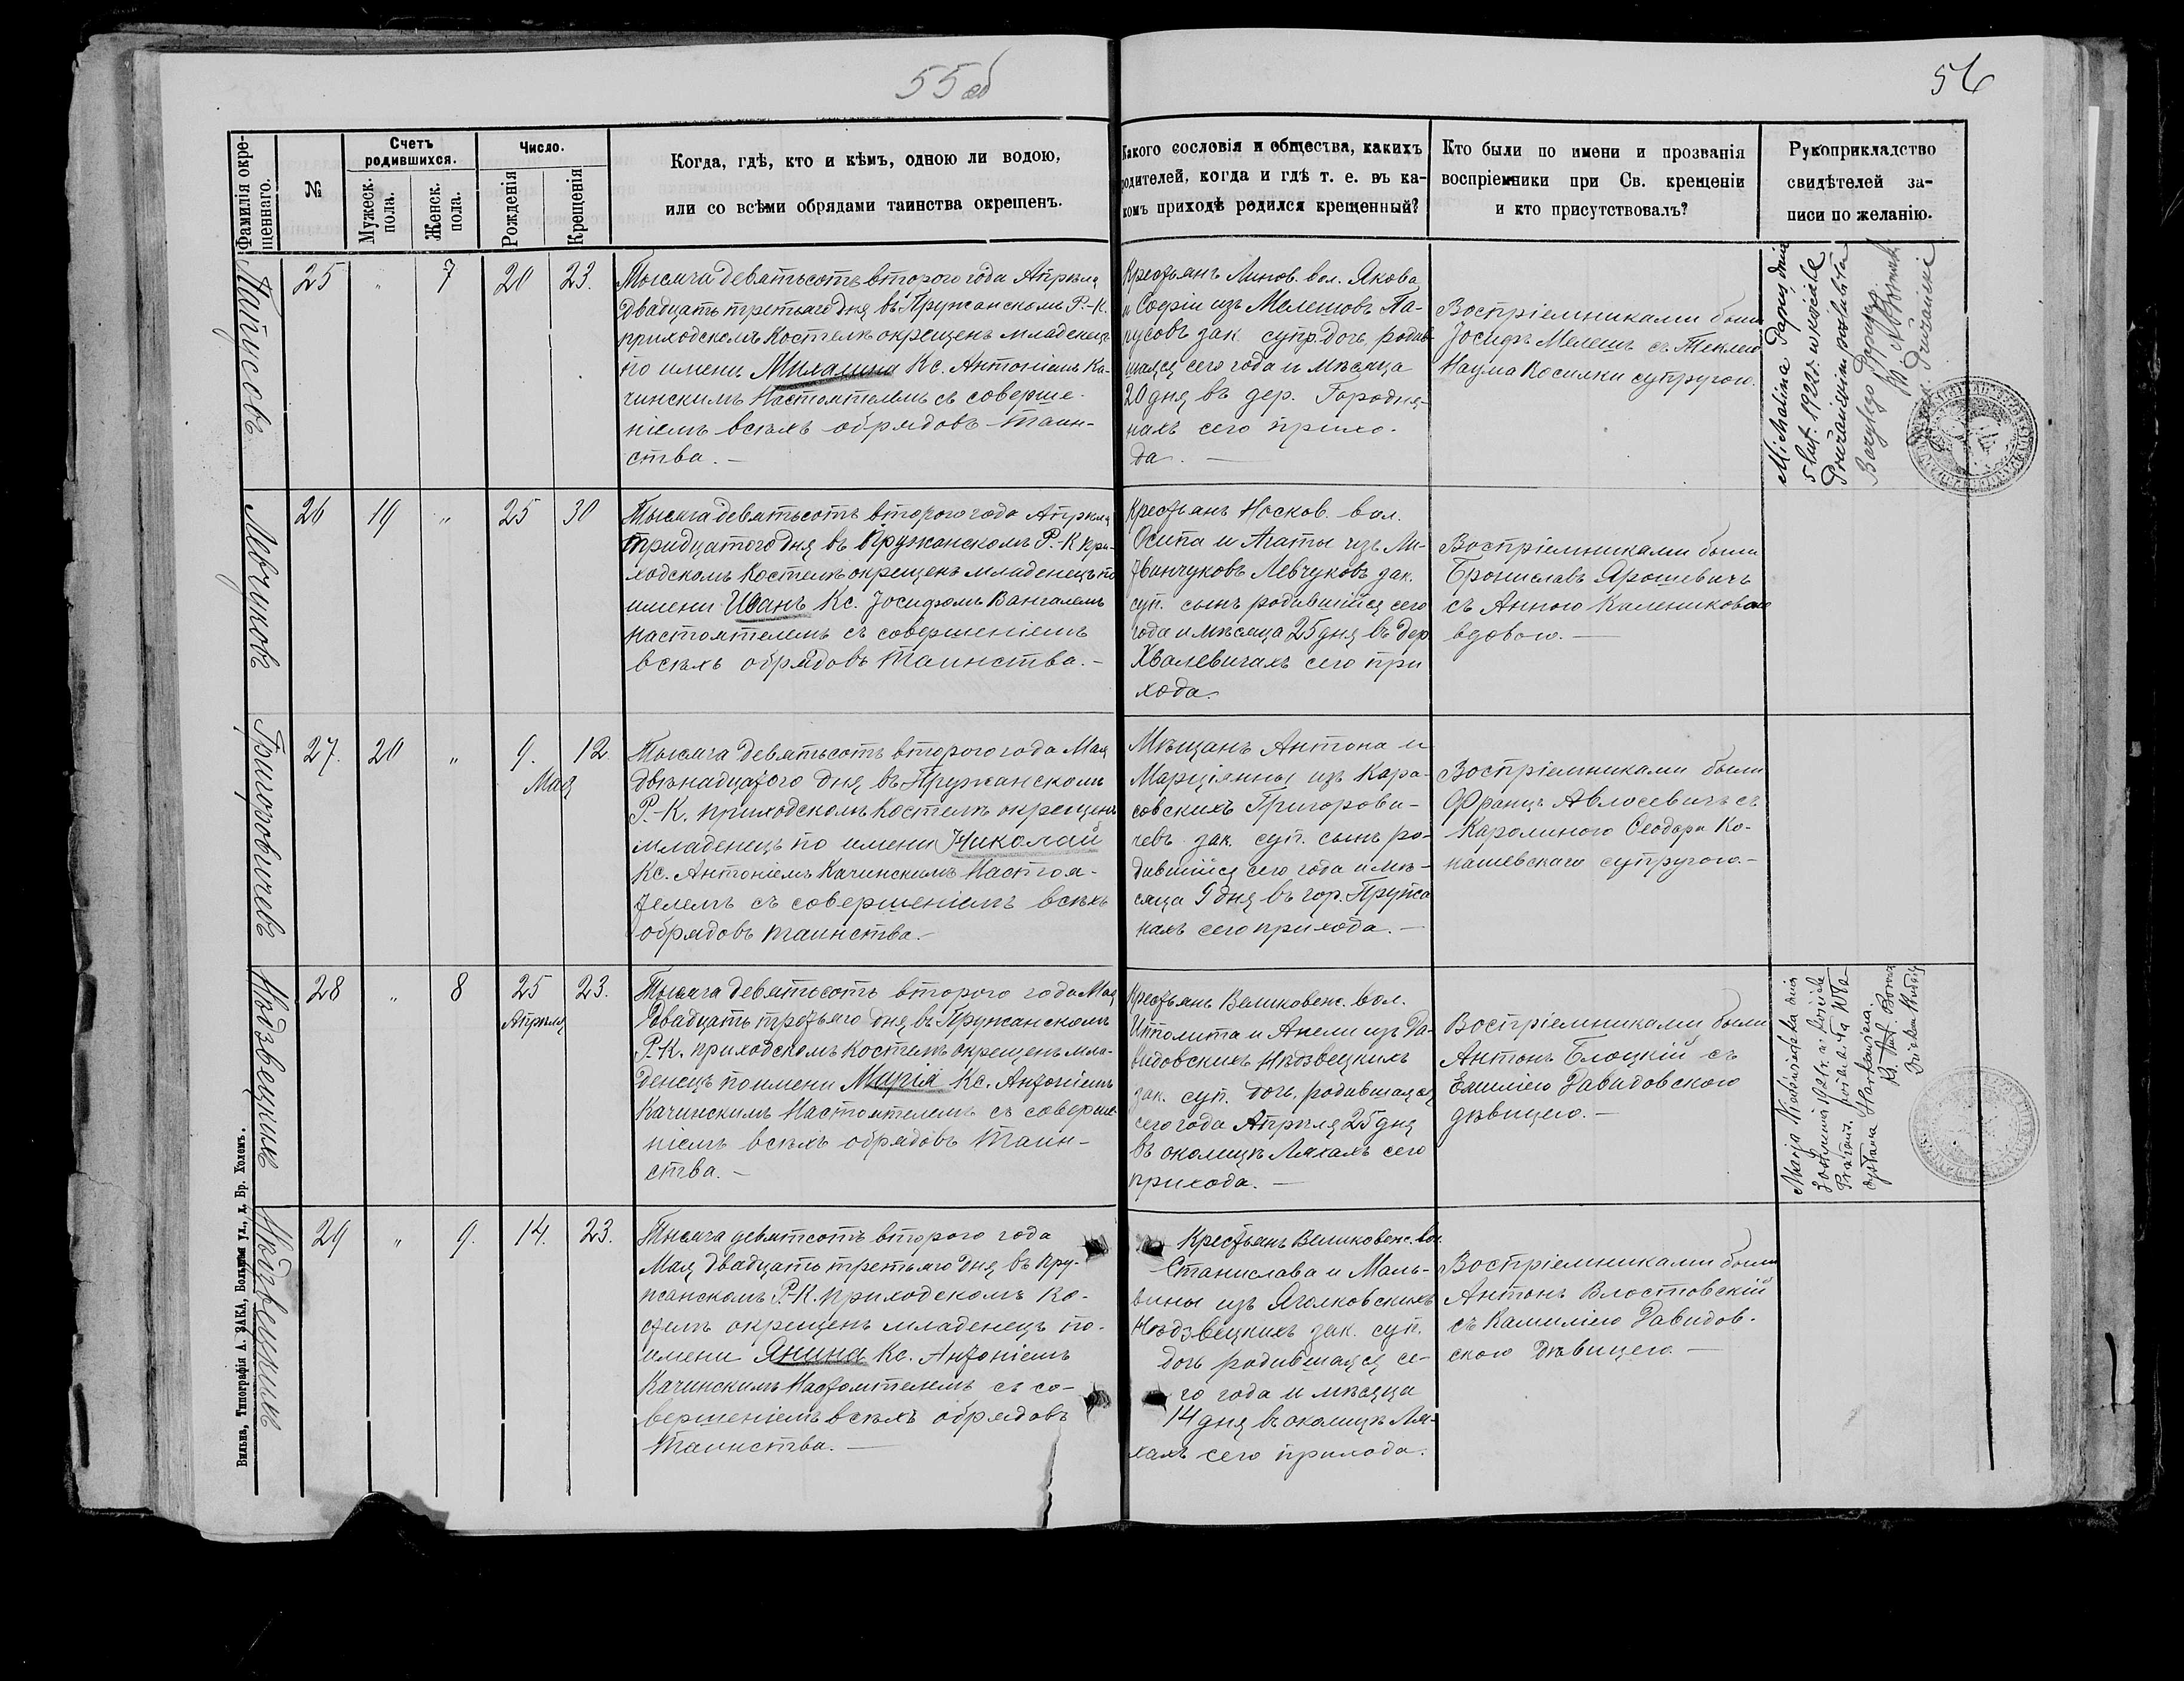 55 об
56
Фамилія окре-
щеннаго.
№
Счетъ
родившихся.
Мужеск.
пола.
Женск.
пола.
Число.
Рожденія
Крещенія
Когда, гдѣ, кто и кѣмъ, одною ли водою,
или со всѣми обрядами таинства окрещенъ.
Какого сословія и общества, какихъ
родителей, когда и гдѣ т. е. въ ка-
комъ приходѣ родился крещенный?
Кто были по имени и прозванія
воспріемники при Св. крещеніи
и кто присутствовалъ?
Рукоприкладство
свидѣтелей за-
писи по желанію.
Папусовъ
25 " 7 20 23.
Тысяча девятьсотъ второго года Апрѣля
двадцать третьяго дня въ Пружанскомъ Р.-К.
приходскомъ Костелѣ окрещенъ младенецъ
по имени Михалина Кс. Антоніемъ Ка-
чинскимъ Настоятелемъ съ соверше-
ніемъ всѣхъ обрядовъ таин-
ства. —
Крестьянъ Линов. вол. Якова
и Софіи изъ Мелешовъ Па-
пусовъ зак. супр. дочь, родив-
шаяся сего года и мѣсяца
20 дня въ дер. Городня-
нахъ сего прихо-
да. —
Воспріемниками были
Іосифъ Мелешъ съ Теклею
Наума Косилки супругою.
Michalina Papuś dnia
5 lut. 1922 r. w kościele
Prużańskim poślubiła
Левчуковъ
26 19 " 25 30
Тысяча девятьсотъ второго года Апрѣля
тридцатого дня въ Пружанскомъ Р.-К при-
ходскомъ Костелѣ окрещенъ младенецъ по
имени Иванъ Кс. Іосифомъ Вангалемъ
настоятелемъ съ совершеніемъ
всѣхъ обрядовъ таинства. —
Крестьянъ Носков. вол.
Осипа и Агаты изъ Ли-
твинчуковъ Левчуковъ зак.
суп. сынъ родившійся сего
года и мѣсяца 25 дня въ дер.
Хвалевичахъ сего при
хода.
Воспріемниками были
Брониславъ Ярошевичъ
съ Анною Калениковою
вдовою. —
Григоровичевъ
27. 20 " 9. 12.
Мая
Тысяча девятьсотъ второго года Мая
двѣнадцатого дня въ Пружанскомъ
Р.-К. приходскомъ Костелѣ окрещенъ
младенецъ по имени Николай
Кс. Антоніемъ Качинскимъ Настоя-
телемъ съ совершеніемъ всѣхъ
обрядовъ таинства. —
Мѣщанъ Антона и
Марціянны изъ Кара-
совскихъ Григорови-
чевъ зак. суп. сынъ ро-
дившійся сего года и мѣ-
сяца 9 дня въ гор. Пружа
нахъ сего прихода. —
Воспріемниками были
Францъ Авлосевичъ съ
Каролиною Ѳеодора Ко-
нашевскаго супругою. —
Нѣдзвецкихъ
28 " 8 25 23.
Апрѣля
Тысяча девятьсотъ второго года Мая
двадцать третьяго дня въ Пружанскомъ
Р.-К. приходскомъ Костелѣ окрещенъ мла-
денецъ по имени Марія Кс. Антоніемъ
Качинскимъ Настоятелемъ съ соверше-
ніемъ всѣхъ обрядовъ таин-
ства. —
Крестьянъ Великовенс. вол.
Ипполита и Анели изъ Да-
видовскихъ Нѣдзвецкихъ
зак. суп. дочь, родившаяся
сего года Апрѣля 25 дня
въ околицѣ Ляхахъ сего
прихода. —
Воспріемниками были
Антонъ Блоцкій съ
Емиліею Давидовскою
дѣвицею. —
Нѣдзвецкихъ
29 " 9. 14. 23.
Тысяча девятсотъ второго года
Мая двадцать третьяго дня въ Пру-
жанскомъ Р.-К. приходскомъ Ко-
стелѣ окрещенъ младенецъ по-
имени Янина Кс. Антоніемъ
Качинскимъ Настоятелемъ съ со-
вершеніемъ всѣхъ обрядовъ
таинства. —
Крестьянъ Великовенс. вол
Станислава и Маль-
вины изъ Яголковскихъ
Нѣдзвецкихъ зак. суп.
дочь родившаяся се-
го года и мѣсяца
14 дня въ околицѣ Ля-
хахъ сего прихода.
Воспріемниками были
Антонъ Властовскій
съ Камиліею Давидов-
скою дѣвицею. —
Вильна, Типографія А. ЗАКА, Большая ул., д. Бр. Холемъ.